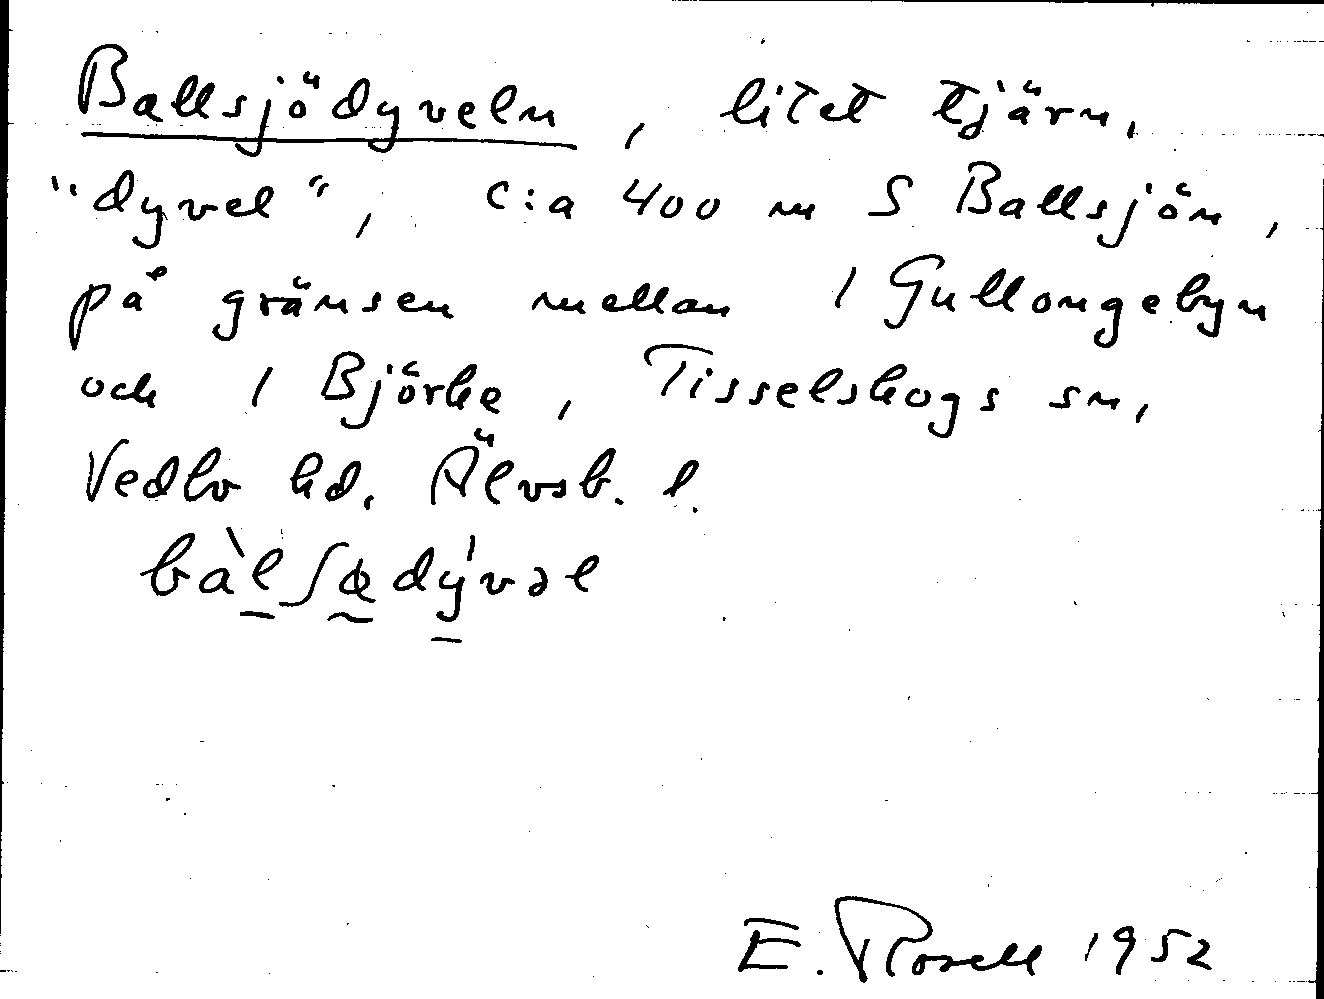 Ballsjödyveln, litet tjärn,
"dyvel", c:a 400 m S Ballsjön,
på gränsen mellan 1 Gullongebyn
och 1 Björke, Tisselskogs sn,
Vedbo hd. Älvsb. l.
bàlʃødy̍vəl
E. Rosell 1952